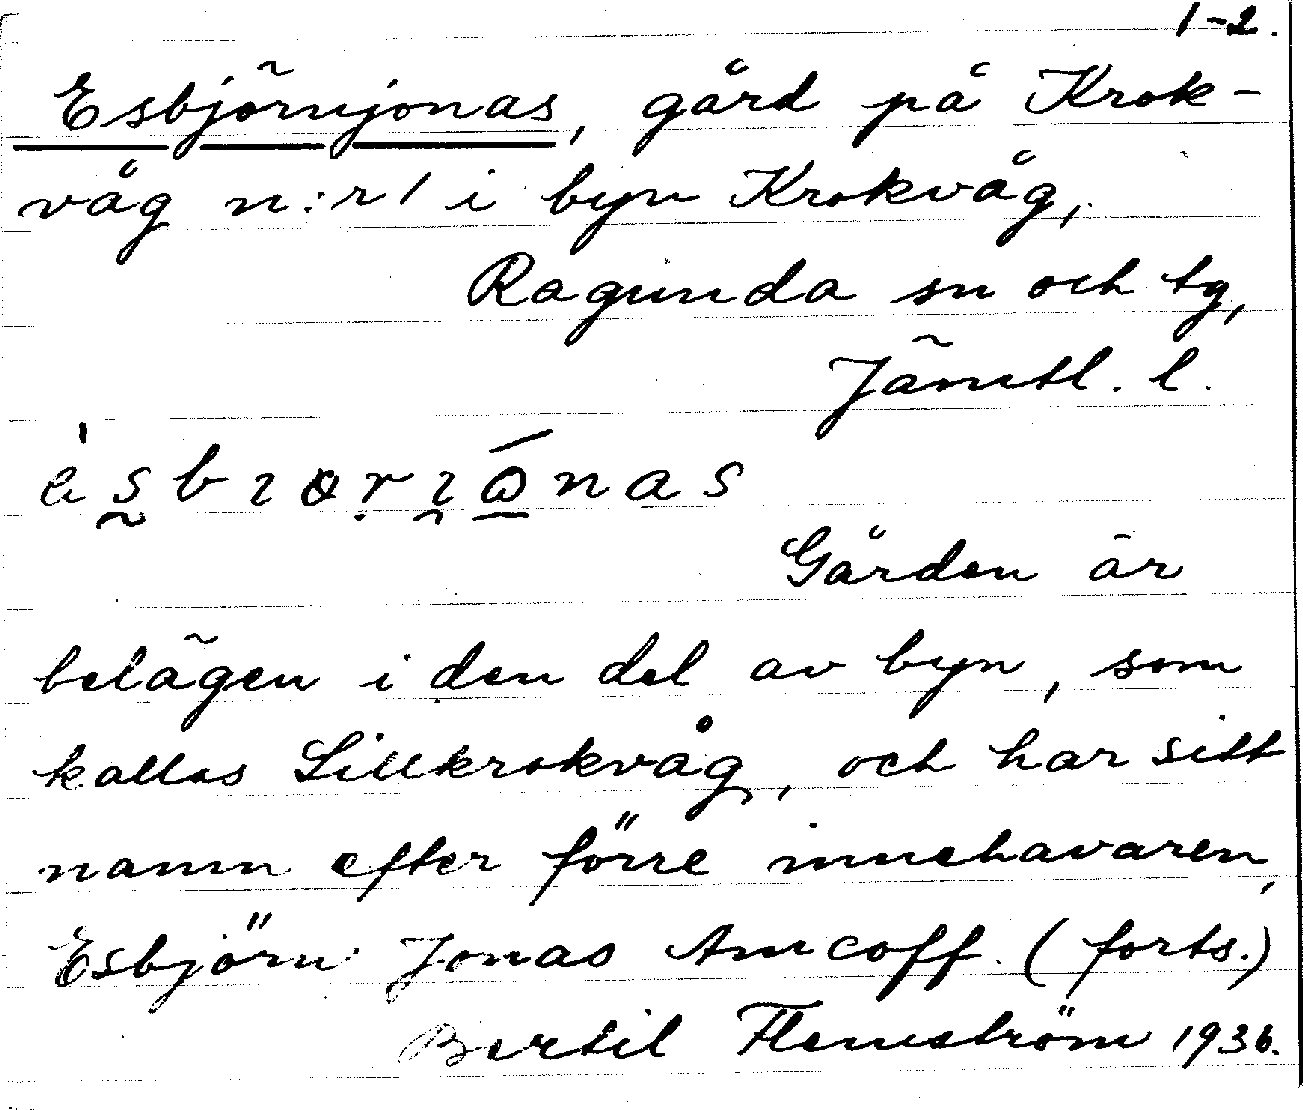 1-2.
Esbjörnjonas, gård på Krok-
våg n:r 1 i byn Krokvåg,
Ragunda sn och tg,
Jämtl. l.
èsbıɷrıónas
Gården är
belägen i den del av byn, som
kallas Lillkrokvåg, och har sitt
namn efter förre innehavaren,
Esbjörn Jonas Amcoff. (forts.)
Bertil Flemström 1936.